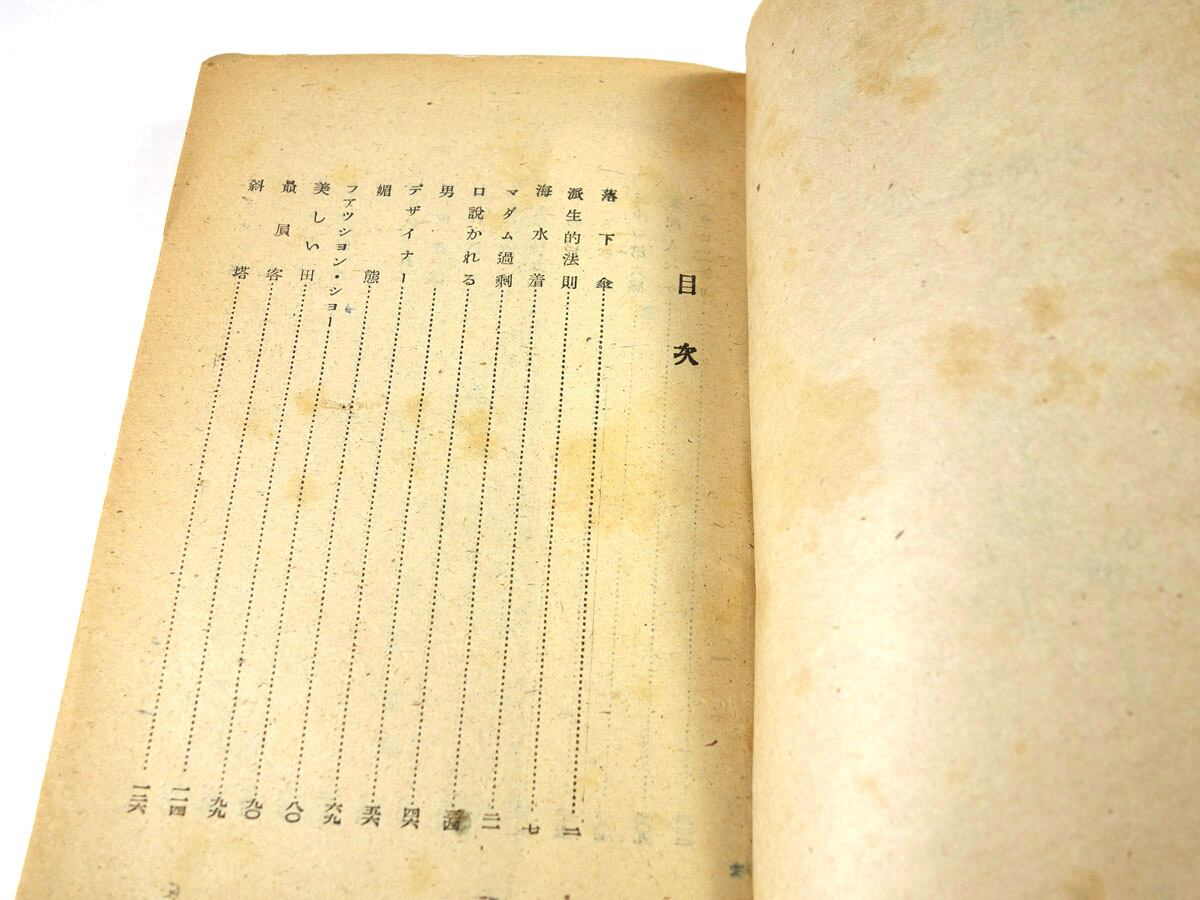 目次
落下傘
派生的法則 七
海水着 二一
マダム過剰 三四
口説かれる 四六
男 五六
デザイナー 六九
媚態 八〇
フアツシヨン・シヨー 九〇
美しい田 九九
最屓客 一一四
斜塔 一二六